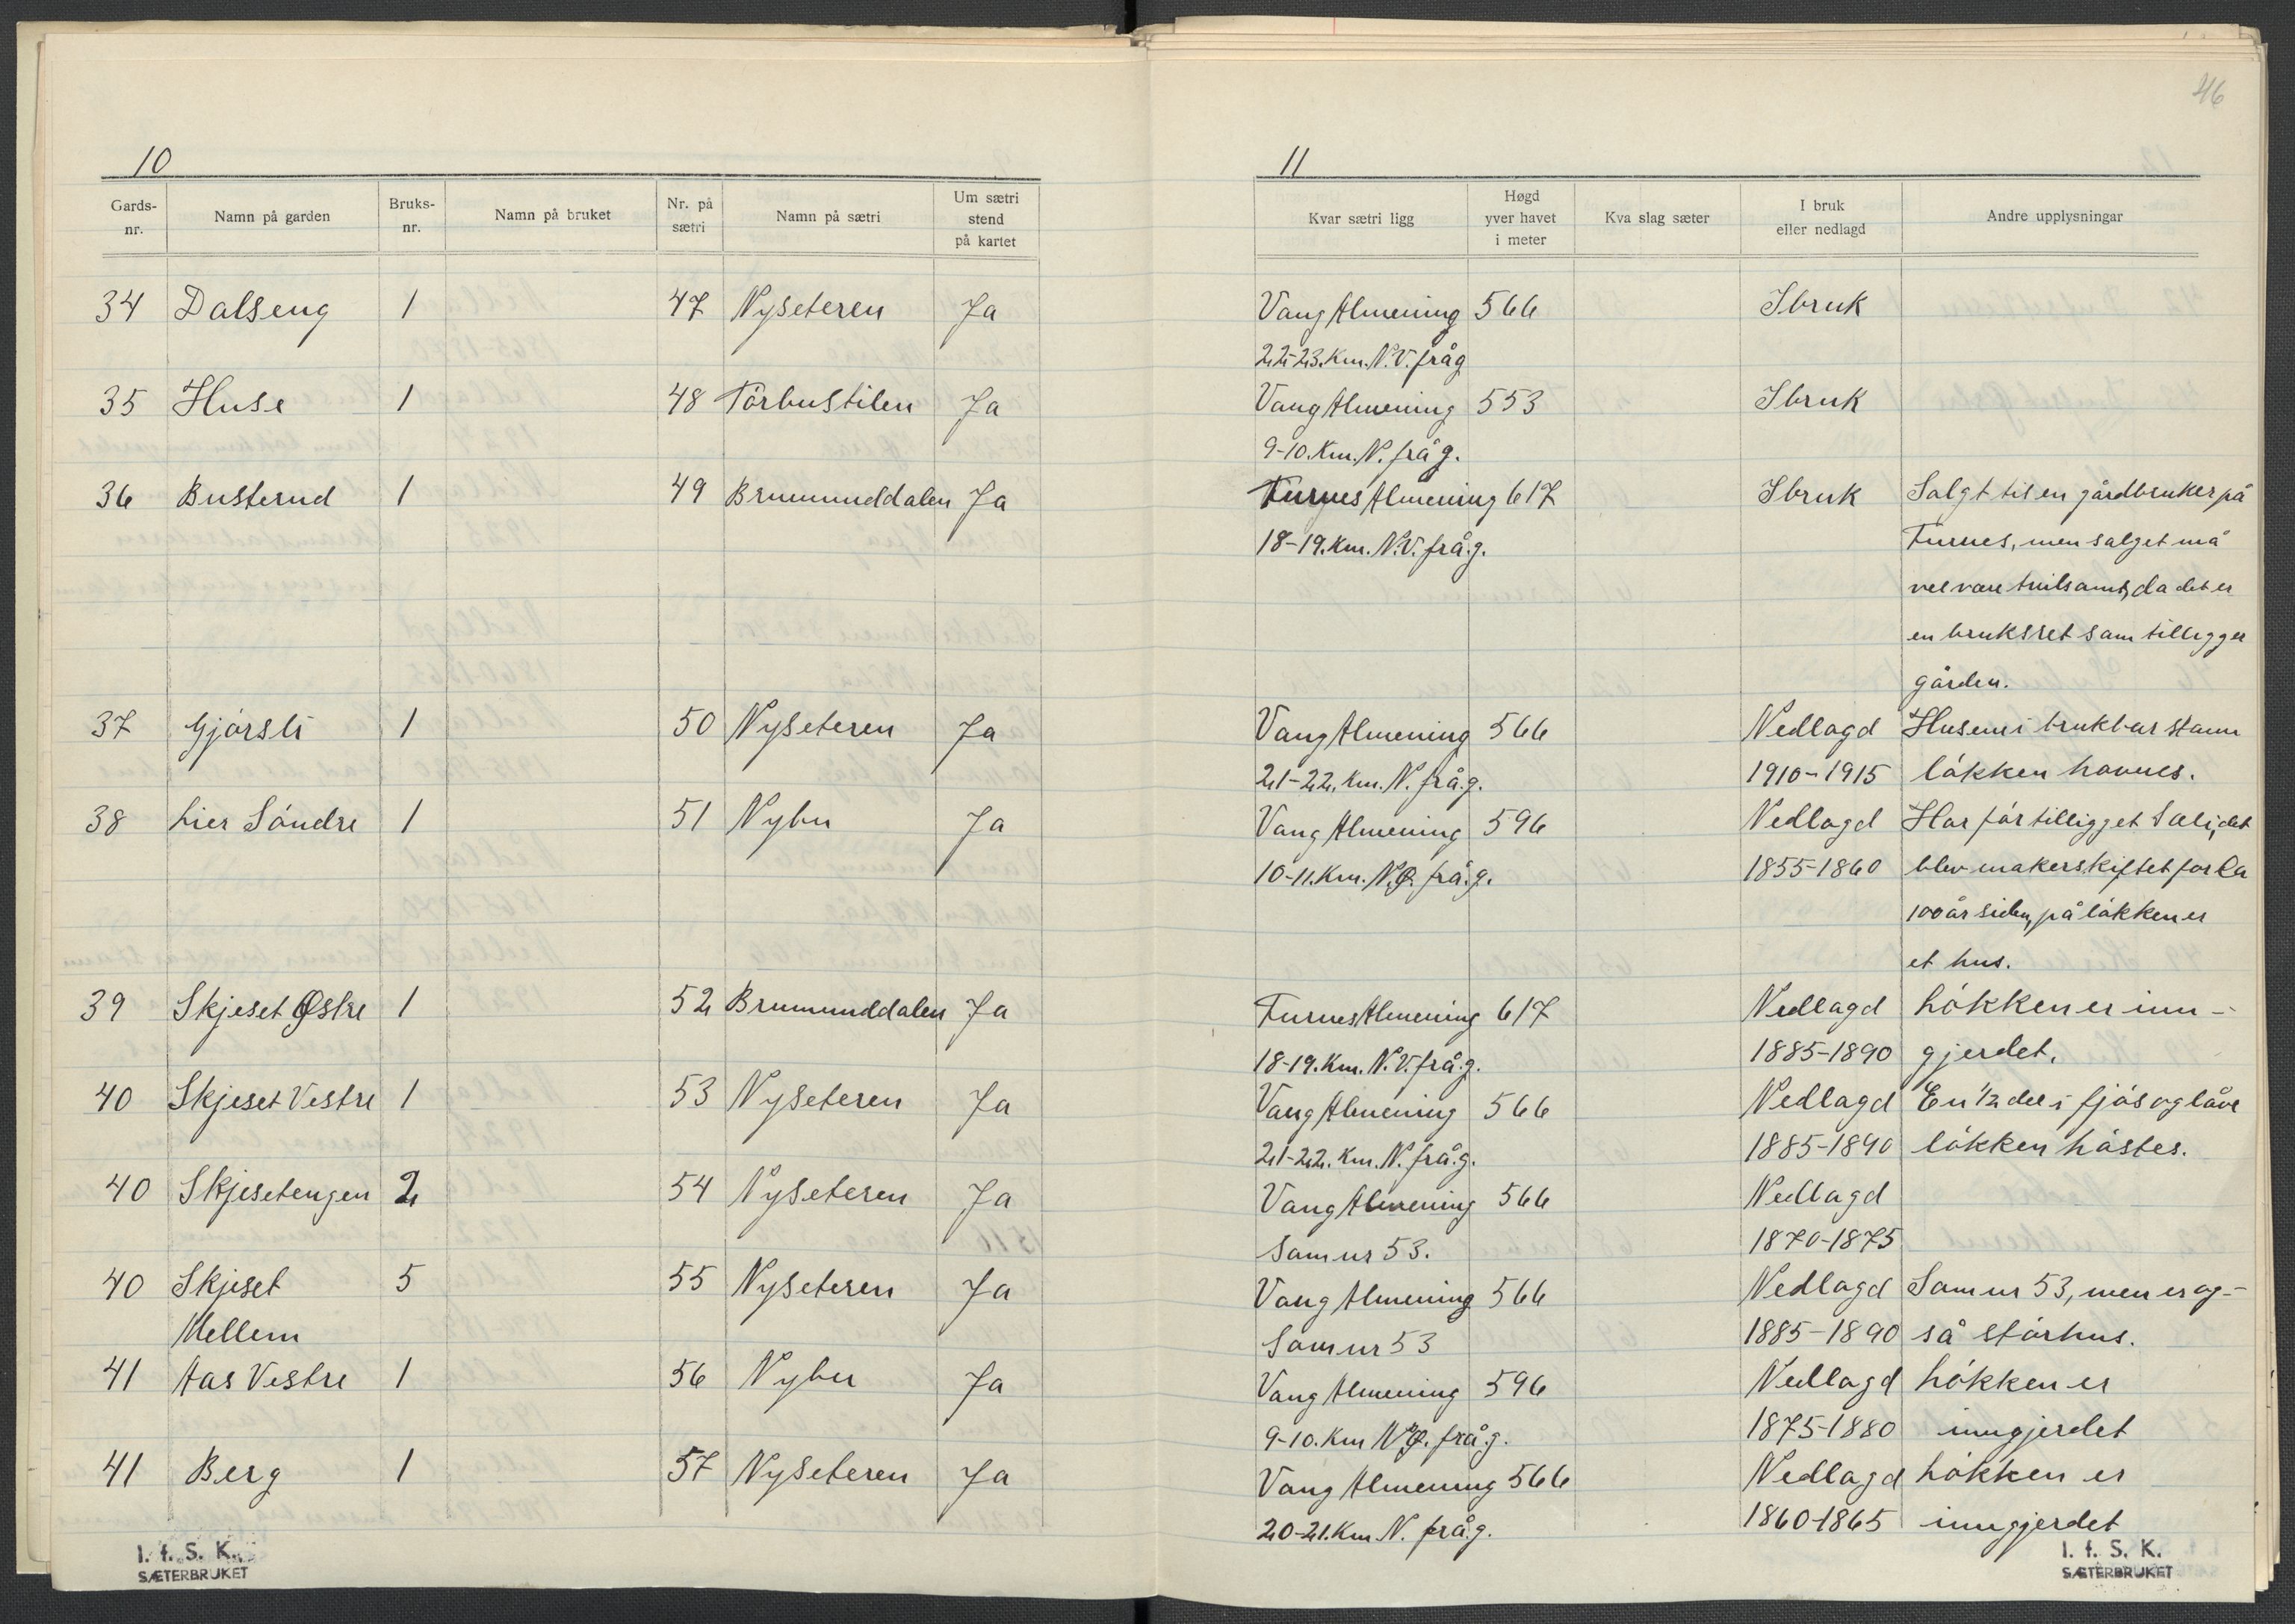 46
10
Gards-nr. Namn på garden Bruks-nr. Namn på bruket Nr. på sætri Namn på sætri Um sætri stend på kartet
34 Dalseng 1 47 Nyseteren Ja
35 Huse 1 48 Törbustilen Ja
36 Busterud 1 49 Brumunddalen Ja
37 Gjörsli 1 50 Nyseteren Ja
38 Lier Söndre 1 51 Nybu Ja
39 Skjeset Østre 1 52 Brumunddalen Ja
40 Skjeset Vestre 1 53 Nyseteren Ja
40 Skjesetengen 2 54 Nyseteren Ja
40 Skjeset 5 55 Nyseteren Ja
Mellem
41 Aas Vestre 1 56 Nybu Ja
41 Berg 1 57 Nyseteren Ja
I. f. S. K.
SÆTERBRUKET
11
Kvar sætri ligg Høgd yver havet i meter Kva slag sæter I bruk eller nedlagd Andre upplysningar
Vang Almening 566 Ibruk
22-23. Km. N.V. fråg
Vang Almening 553 Ibruk
9-10. Km. N. frå g.
Furnes Almening 617 Ibruk Salgt til en gårdbruker på
18-19. Km. N.V. frå.g. Furnes, men salget må
vel være tvilsamt, da det er
en bruksret som tilligger
gården.
Vang Almening 566 Nedlagd Husene i brukbar stann
21-22. Km. N. frå.g. 1910-1915 lökken havnes.
Vang Almening 596 Nedlagd Har för tilligget Sæli, det
10-11. Km. N.Ø. frå.g. 1855-1860 blev makerskiftet for Ca
100 år siden, på lökken er
et hus.
Furnes Almening 617 Nedlagd Lökken er inn-
18-19. Km. N.V. frå.g. 1885-1890 gjerdet.
Vang Almening 566 Nedlagd En 1/2 del i fjös og låve
21-22. Km. N. frå.g. 1885-1890 lökken höstes.
Vang Almening 566 Nedlagd
Som nr 53. 1870-1875
Vang Almening 566 Nedlagd Som nr 53, men er og-
Som nr 53 1885-1890 så störhus.
Vang Almening 596 Nedlagd Lökken er
9-10. Km N.Ø. frå.g. 1875-1880 inngjerdet
Vang Almening 566 Nedlagd Lökken er
20-21. Km N. frå.g. 1860-1865 inngjerdet
I. f. S. K.
SÆTERBRUKET